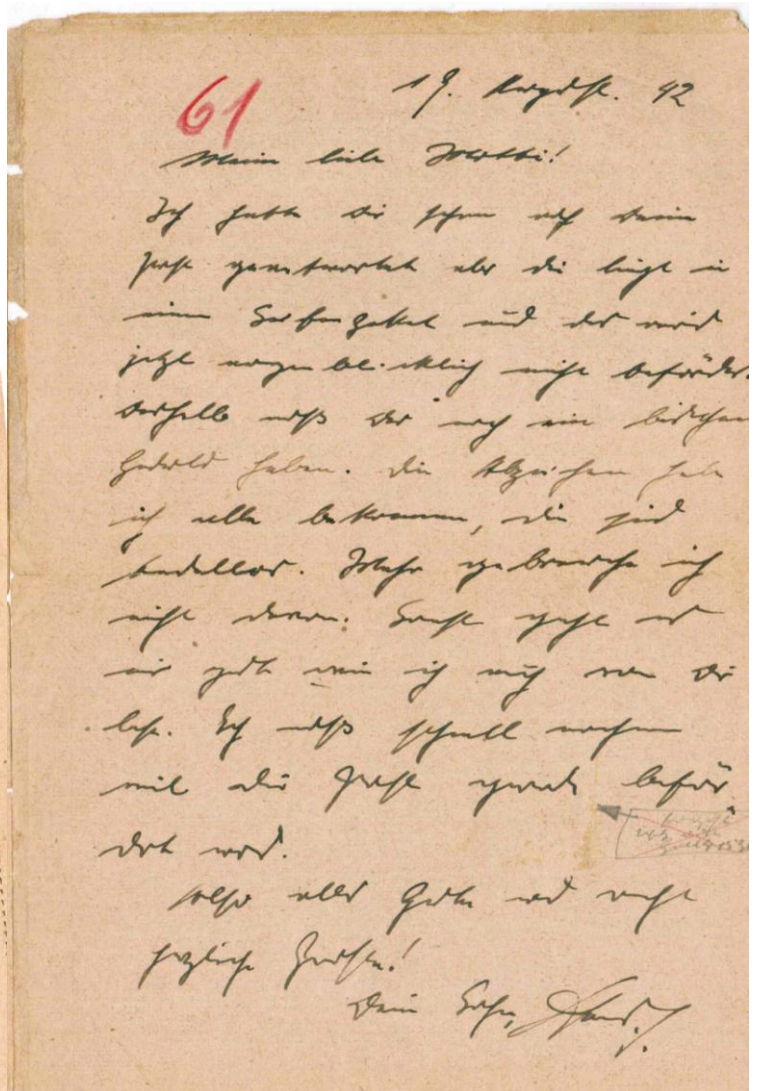 61
19. August. 42
Meine liebe Mutti!
Ich hatte dir schon auf deine
Post geantwortet aber die liegt in
einem Seifenpaket und das wird
jetzt augenblicklich nicht beförder
deshalb mußt du noch ein bißchen
Geduld haben. Die Abzeichen habe
ich alle bekommen, die sind
tadellos. Mehr gebrauche ich
nicht davon. Sonst geht es
mir gut wie ich auch von dir
lese. Ich muß schnell machen
weil die Post gerade beför
dert wird.
Also alles Gute und recht
herzliche Grüße!
Dein Sohn, Hans.